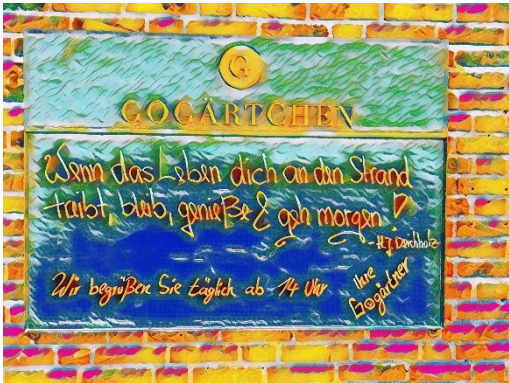 G
GOGÄRTCHEN
Wenn das Leben dich an den Strand
treibt, bleib, genieße & geh morgen!
Wir begrüßen Sie täglich ab 14 Uhr
Ihre
Gogärtner